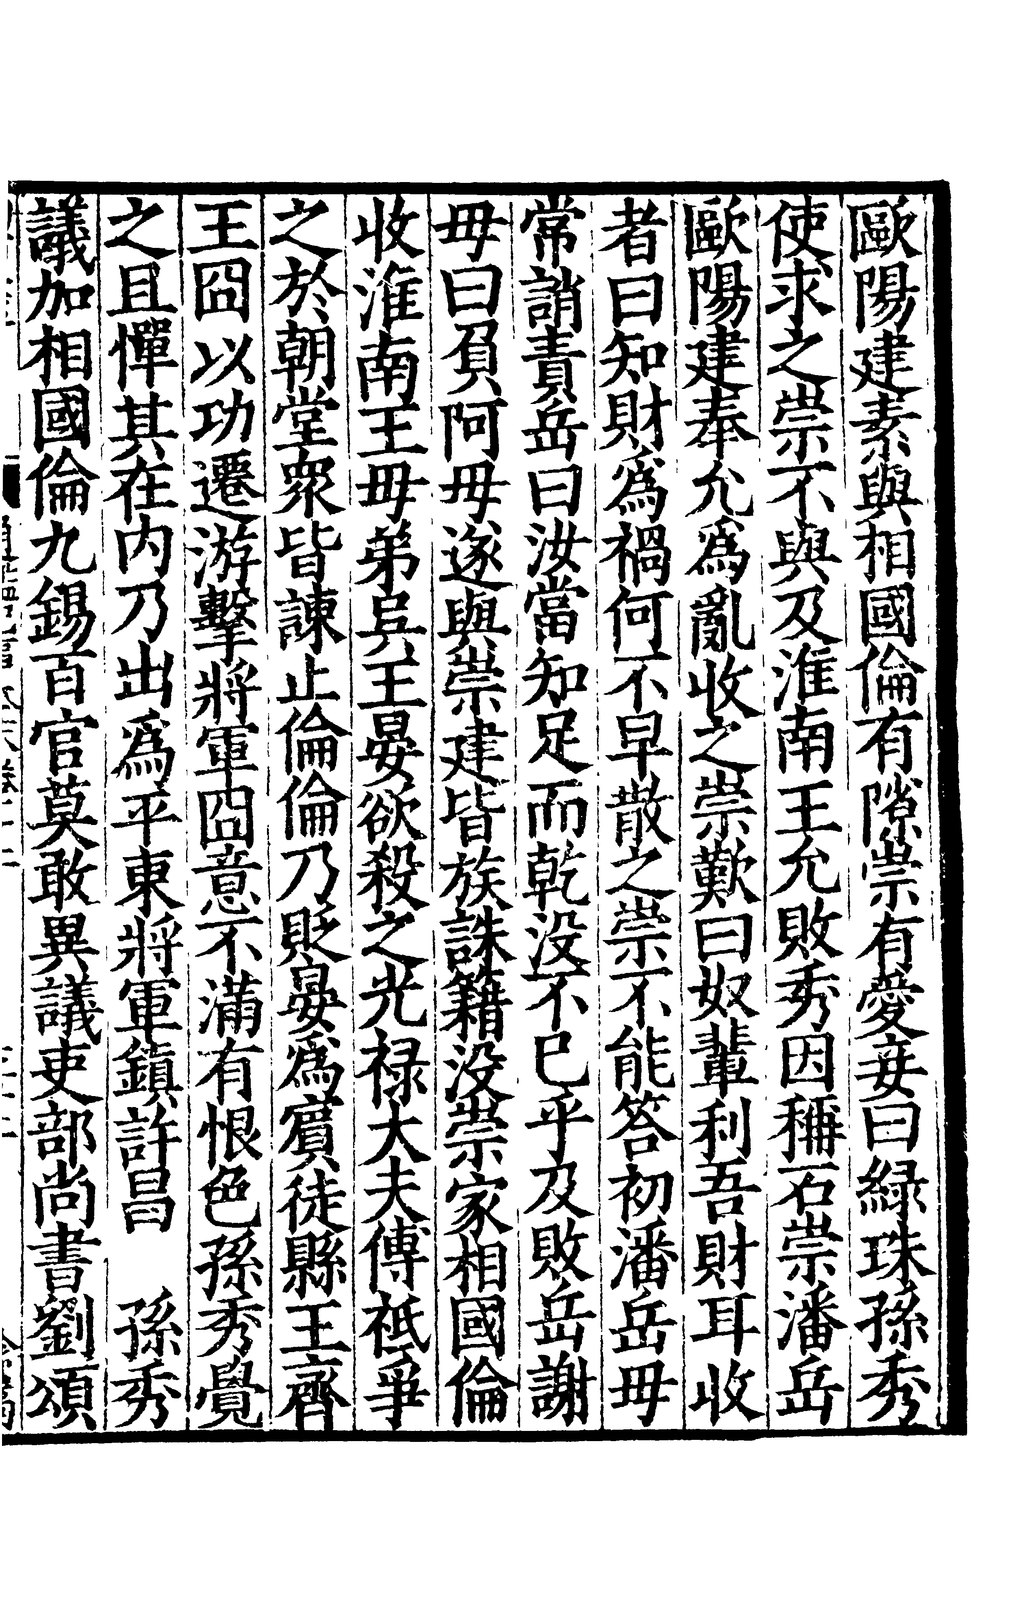 歐陽建素與相國倫有隙崇有愛妾曰綠珠孫秀
使求之崇不與及淮南王允敗秀因稱石崇潘岳
歐陽建奉允爲亂收之崇歎曰奴輩利吾財耳收
者曰知財爲禍何不早散之崇不能答初潘岳毋
常誚責岳曰汝當知足而乾没不已乎及敗岳謝
毋曰負阿毋遂與崇建皆族誅籍没崇家相國倫
收淮南王毋弟吳王晏欲殺之光禄大夫傅祗爭
之於朝堂衆皆諫止倫倫乃貶晏爲賓徒縣王齊
王冏以功遷游擊將軍冏意不滿有恨色孫秀覺
之且憚其在内乃出爲平東將軍鎮許昌　孫秀
議加相國倫九錫百官莫敢異議吏部尚書劉頌